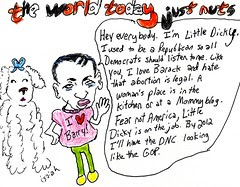 the world today just nuts
Hey everybody. I'm Little Dicky.
I used to be a Republican so all
Democrats should listen to me. Like
you, I love Barack and hate
that abortion is legal. A
woman's place is in the
kitchen or at a Mommy blog.
Fear not America, Little
Dicky is on the job. By 2012
I'll have the DNC looking
like the GOP.
I ♥
Barry!
Isaiah